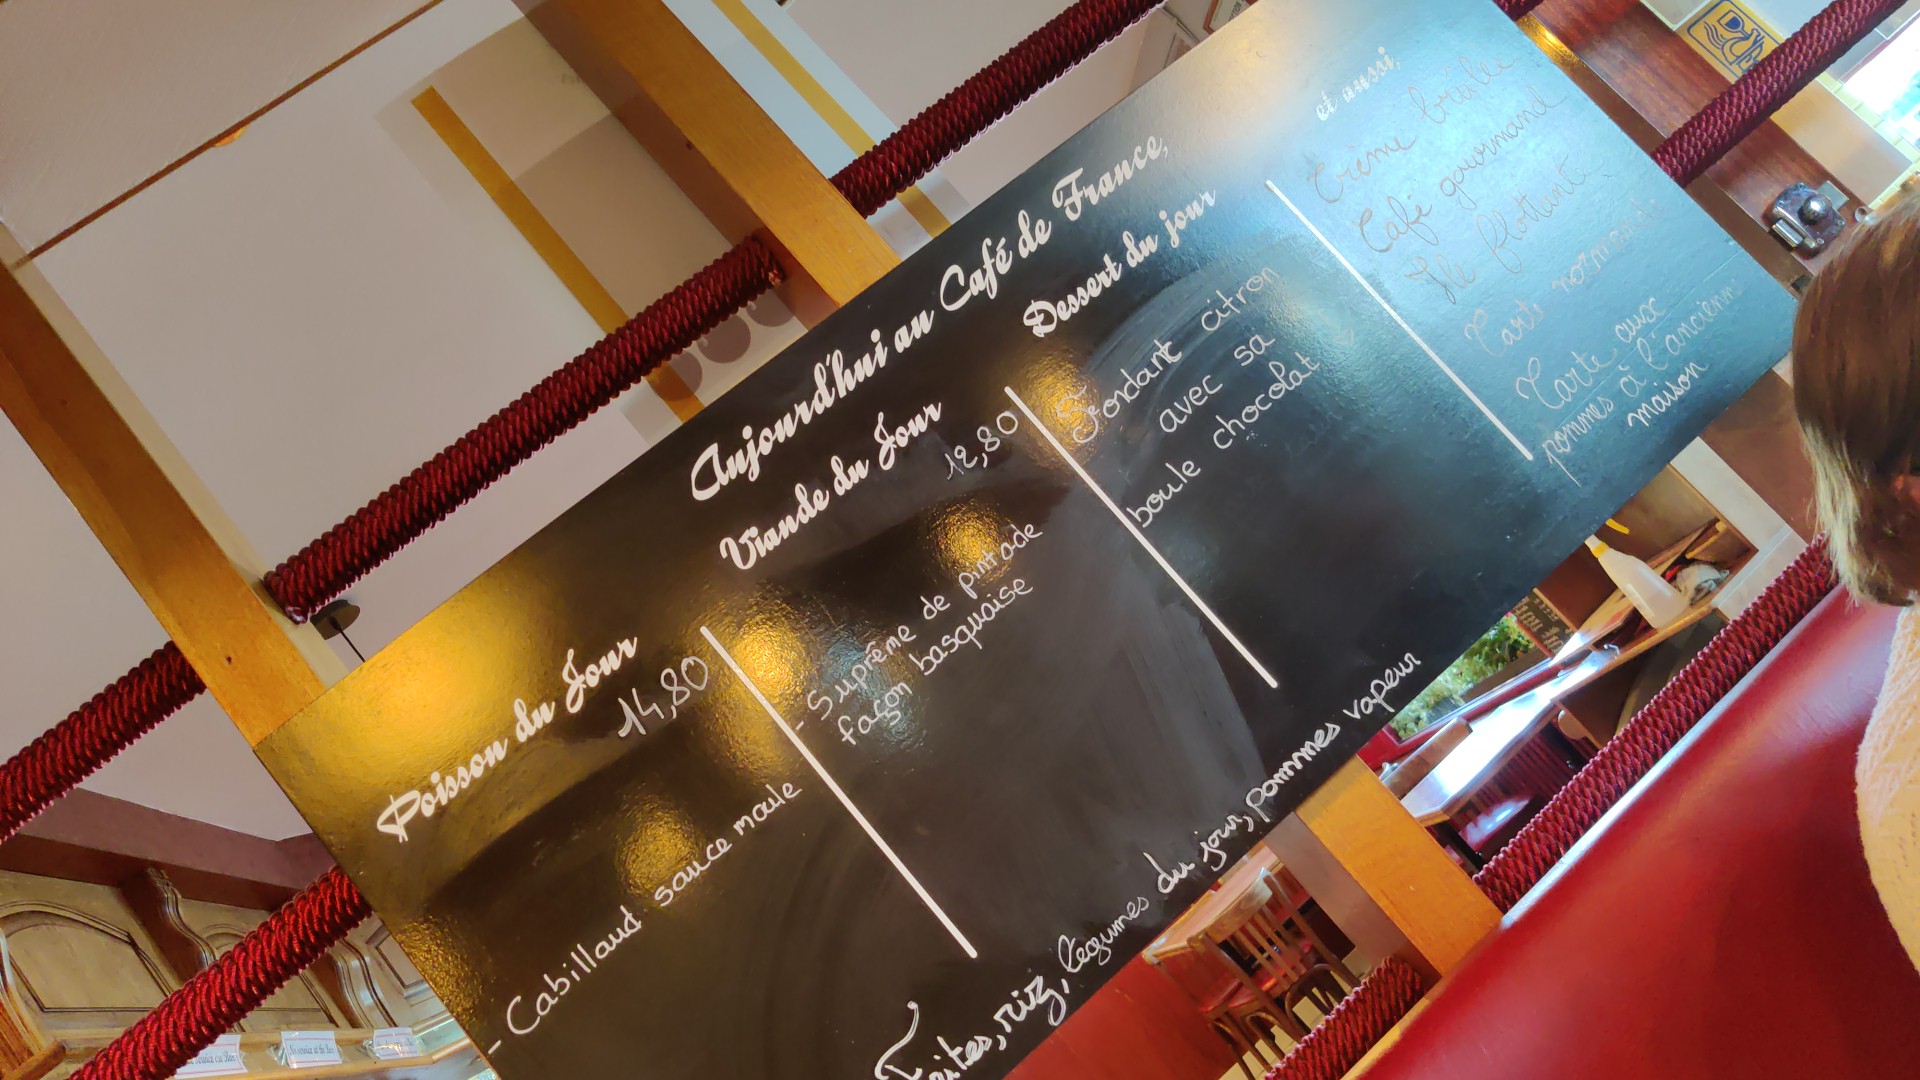 Aujourd'hui au Café de France,
Poisson du Jour
14,80
- Cabillaud sauce moule
Viande du Jour
12,80
- Suprême de pintade
façon basquaise
Dessert du jour
Fondant citron
avec sa
boule chocolat
et aussi,
Crème brûlée
Café gourmand
Ile flottant
Tarte normande
Tarte aux
pommes à l'ancienne
maison
Frites, riz, légumes du jour, pommes vapeur